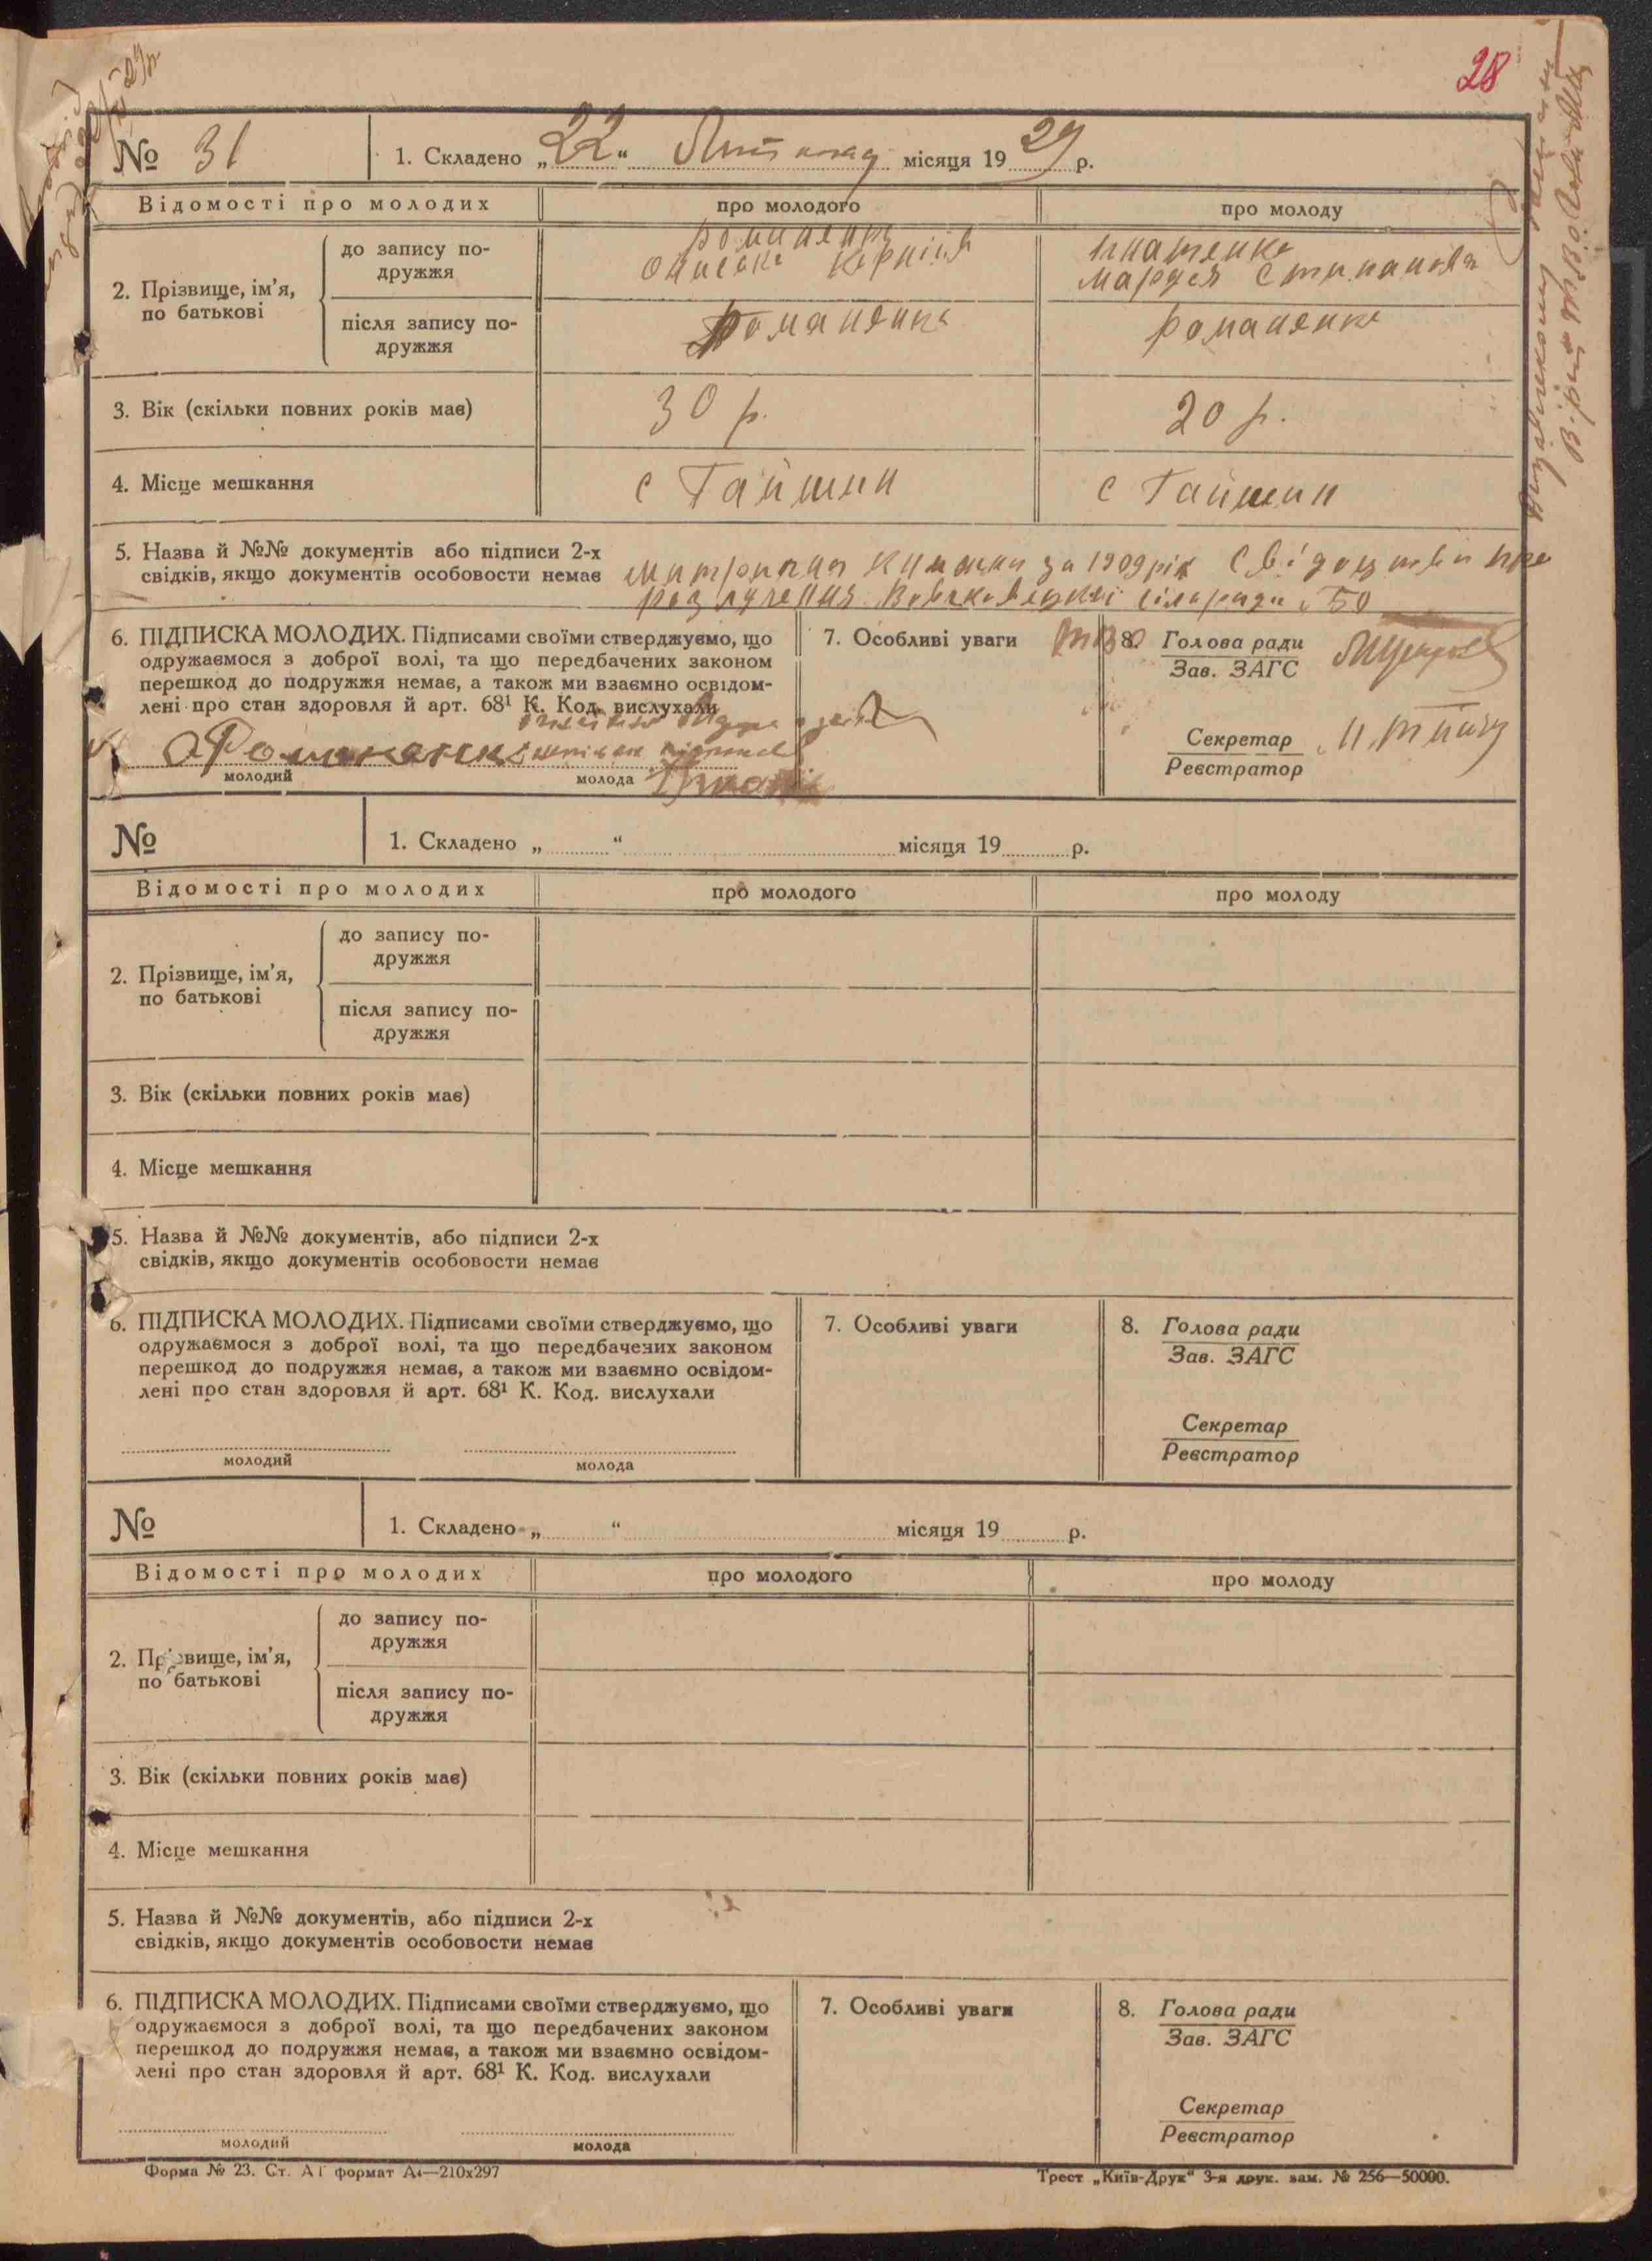 28
№ 31
1. Складено „22“ Листопад місяця 1929 р.
Відомості про молодих
про молодого
про молоду
2. Прізвище, ім’я, по батькові
до запису подружжя
Романенко
Корнійів
Гнатенко
Мария Степанова
після запису подружжя
Романенко
Романенко
3. Вік (скільки повних років має)
30 р.
20 р.
4. Місце мешкання
с Гайшин
с Гайшин
5. Назва й №№ документів або підписи 2-х
свідків, якщо документів особовости немає
Метрична Книжка за 1909 рік Свідоцтва про
розлучення сільради 50
6. ПІДПИСКА МОЛОДИХ. Підписами своїми стверджуємо, що
одружаємося з доброї волі, та що передбачених законом
перешкод до подружжя немає, а також ми взаємно освідом-
лені про стан здоровля й арт. 68¹ К. Код. вислухали
Романенко
молодий
молода
7. Особливі уваги
8. Голова ради
Зав. ЗАГС
Секретар
Реєстратор
№
1. Складено „ “ місяця 19 р.
Відомості про молодих
про молодого
про молоду
2. Прізвище, ім’я,
по батькові
до запису по-
дружжя
після запису по-
дружжя
3. Вік (скільки повних років має)
4. Місце мешкання
5. Назва й №№ документів, або підписи 2-х
свідків, якщо документів особовости немає
6. ПІДПИСКА МОЛОДИХ. Підписами своїми стверджуємо, що
одружаємося з доброї волі, та що передбачених законом
перешкод до подружжя немає, а також ми взаємно освідом-
лені про стан здоровля й арт. 68¹ К. Код. вислухали
молодий
молода
7. Особливі уваги
8. Голова ради
Зав. ЗАГС
Секретар
Реєстратор
№
1. Складено „ “ місяця 19 р.
Відомості про молодих
про молодого
про молоду
2. Прізвище, ім’я,
по батькові
до запису по-
дружжя
після запису по-
дружжя
3. Вік (скільки повних років має)
4. Місце мешкання
5. Назва й №№ документів, або підписи 2-х
свідків, якщо документів особовости немає
6. ПІДПИСКА МОЛОДИХ. Підписами своїми стверджуємо, що
одружаємося з доброї волі, та що передбачених законом
перешкод до подружжя немає, а також ми взаємно освідом-
лені про стан здоровля й арт. 68¹ К. Код. вислухали
молодий
молода
7. Особливі уваги
8. Голова ради
Зав. ЗАГС
Секретар
Реєстратор
Форма № 23. Ст. А1 формат А4—210x297
Трест „Київ-Друк“ 3-я друк. зам. № 256—50000.